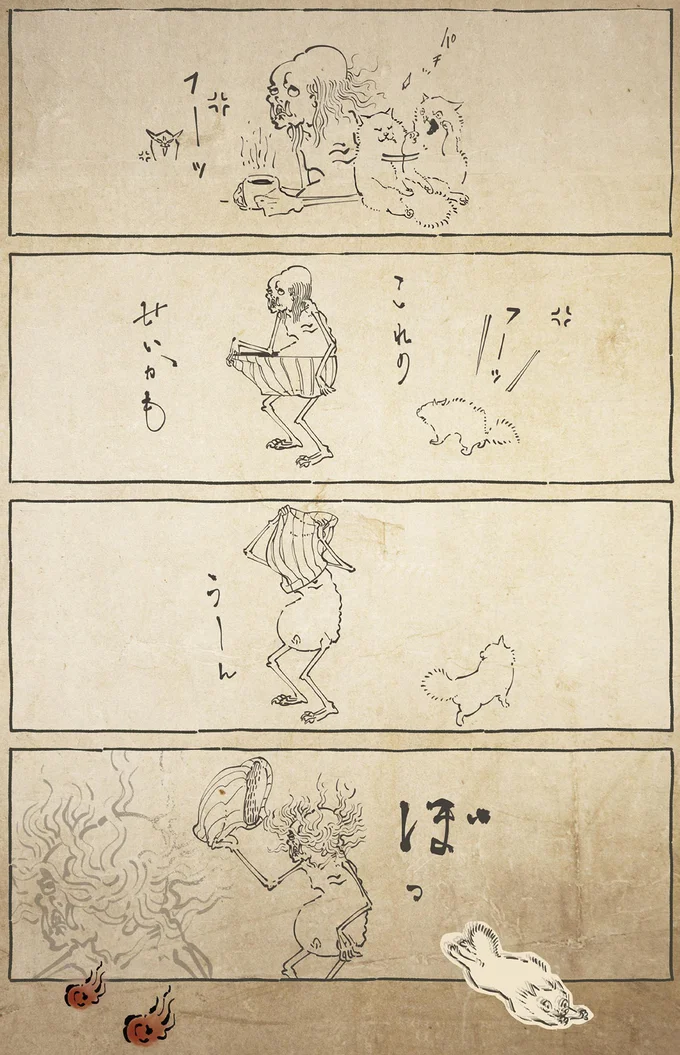 パチ
フーッ
フーッ
これの
せいかも
うーん
ぼっ